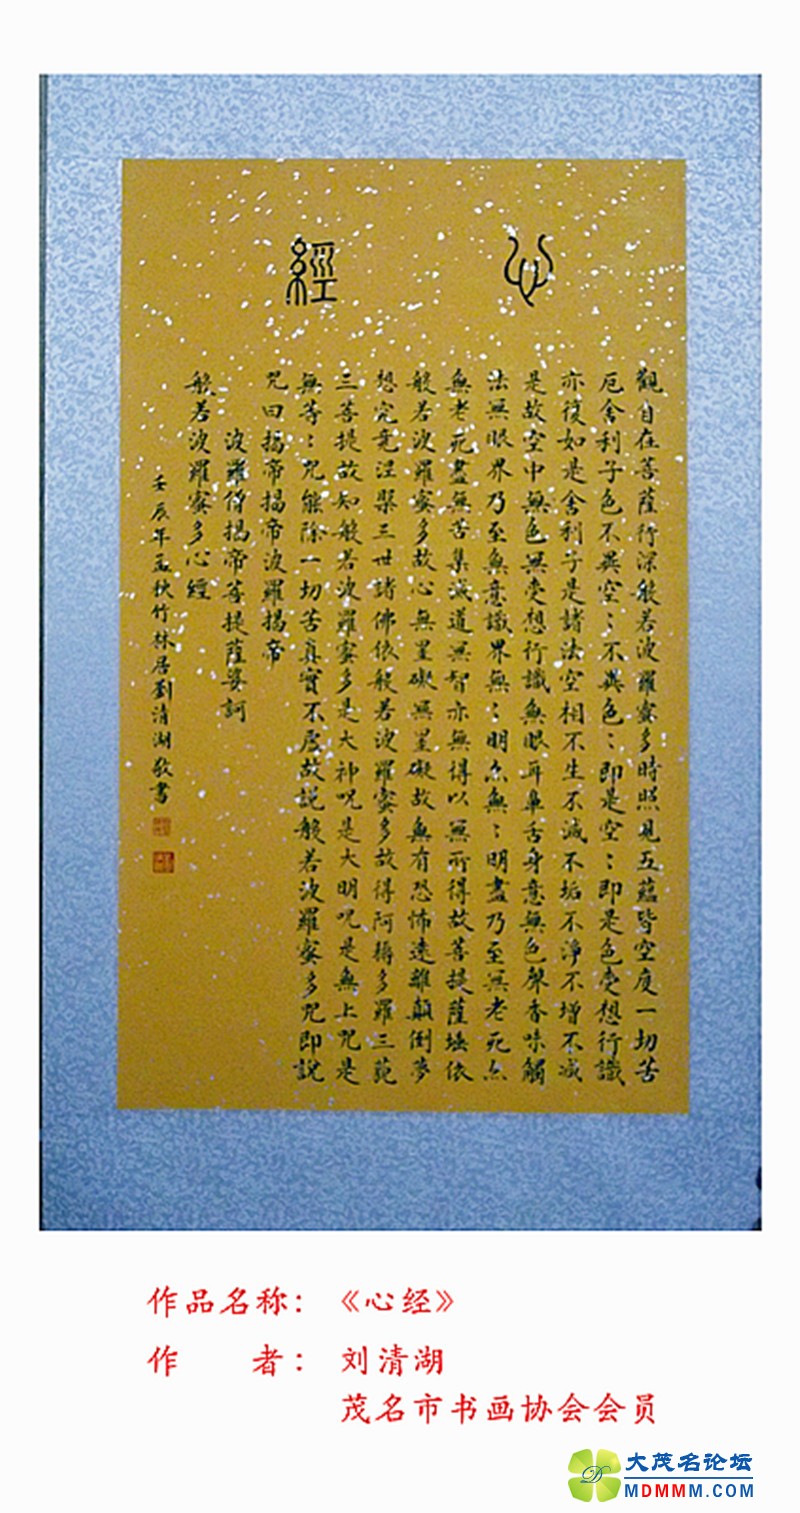 心經
觀自在菩薩行深般若波羅蜜多時照見五蘊皆空度一切苦
厄舍利子色不異空〻不異色〻即是空〻即是色受想行識
亦復如是舍利子是諸法空相不生不滅不垢不淨不增不减
是故空中無色無受想行識無眼耳鼻舌身意無色聲香味觸
法無眼界乃至無意識界無〻明亦無〻明盡乃至無老死亦
無老死盡無苦集滅道無智亦無得以無所得故菩提薩埵依
般若波羅蜜多故心無罣礙無罣礙故無有恐怖遠離顛倒夢
想究竟涅槃三世諸佛依般若波羅蜜多故得阿耨多羅三藐
三菩提故知般若波羅蜜多是大神咒是大明咒是無上咒是
無等〻咒能除一切苦真實不虛故説般若波羅蜜多咒即說
咒曰揭帝揭帝波羅揭帝
波羅僧揭帝菩提薩婆訶
般若波羅蜜多心經
壬辰年孟秋竹林居劉清湖敬書
作品名称：《心经》
作 者：刘清湖
茂名市书画协会会员
大茂名论坛
MDMMM.COM